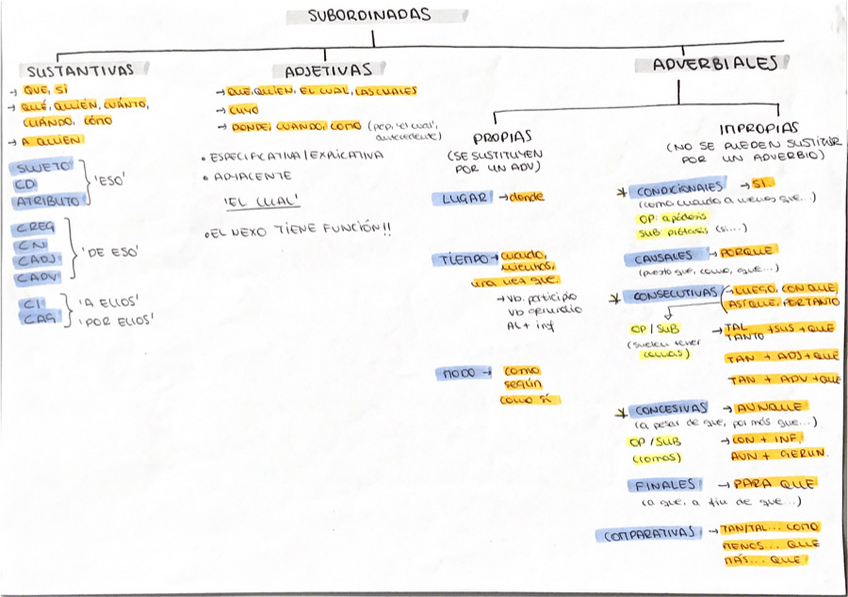 SUBORDINADAS
SUSTANTIVAS
→ QUE, SI
→ QUÉ, QUIÉN, CUÁNTO,
CUÁNDO, CÓMO
→ A QUIEN
SUJETO
CD
ATRIBUTO
'ESO'
CREG
CN
CADJ
CADV
'DE ESO'
CI
CAG
'A ELLOS'
'POR ELLOS'
ADJETIVAS
→ QUE, QUIEN, EL CUAL, LAS CUALES
→ CUYO
→ DONDE, CUANDO, COMO (prep, 'el cual',
antecedente)
• ESPECIFICATIVA / EXPLICATIVA
• ADYACENTE
'EL CUAL'
• EL NEXO TIENE FUNCIÓN!!
ADVERBIALES
PROPIAS
(SE SUSTITUYEN
POR UN ADV)
LUGAR → donde
TIEMPO → cuando,
mientras,
una vez que
→ Vb. participio
Vb gerundio
AL + inf
MODO → como
según
como si
IMPROPIAS
(NO SE PUEDEN SUSTITUIR
POR UN ADVERBIO)
* CONDICIONALES → SI
(como cuando a menos que...)
OP: apódosis
SUB: prótasis (si....)
CAUSALES → PORQUE
(puesto que, como, que...)
* CONSECUTIVAS → LUEGO, CON QUE,
ASÍ QUE, POR TANTO
OP / SUB
(suelen tener
comas)
→ TAL
TANTO + SUS + QUE
TAN + ADJ + QUE
TAN + ADV + QUE
* CONCESIVAS → AUNQUE
(a pesar de que, por más que...)
OP / SUB
(comas)
→ CON + INF.
AUN + GERUN.
FINALES → PARA QUE
(a que, a fin de que...)
COMPARATIVAS → TAN/TAL... COMO
MENOS... QUE
MÁS... QUE